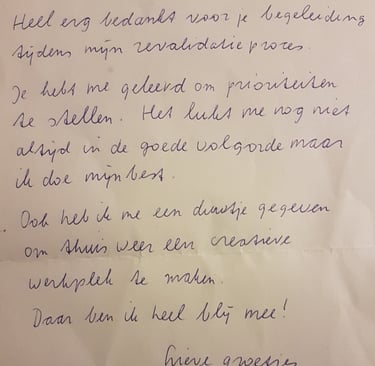 Heel erg bedankt voor je begeleiding
tijdens mijn revalidatieproces.
Je hebt me geleerd om prioriteiten
te stellen. Het lukt me nog niet
altijd in de goede volgorde maar
ik doe mijn best.
Ook heb ik me een duwtje gegeven
om thuis weer een creatieve
werkplek te maken.
Daar ben ik heel blij mee!
Lieve groetjes